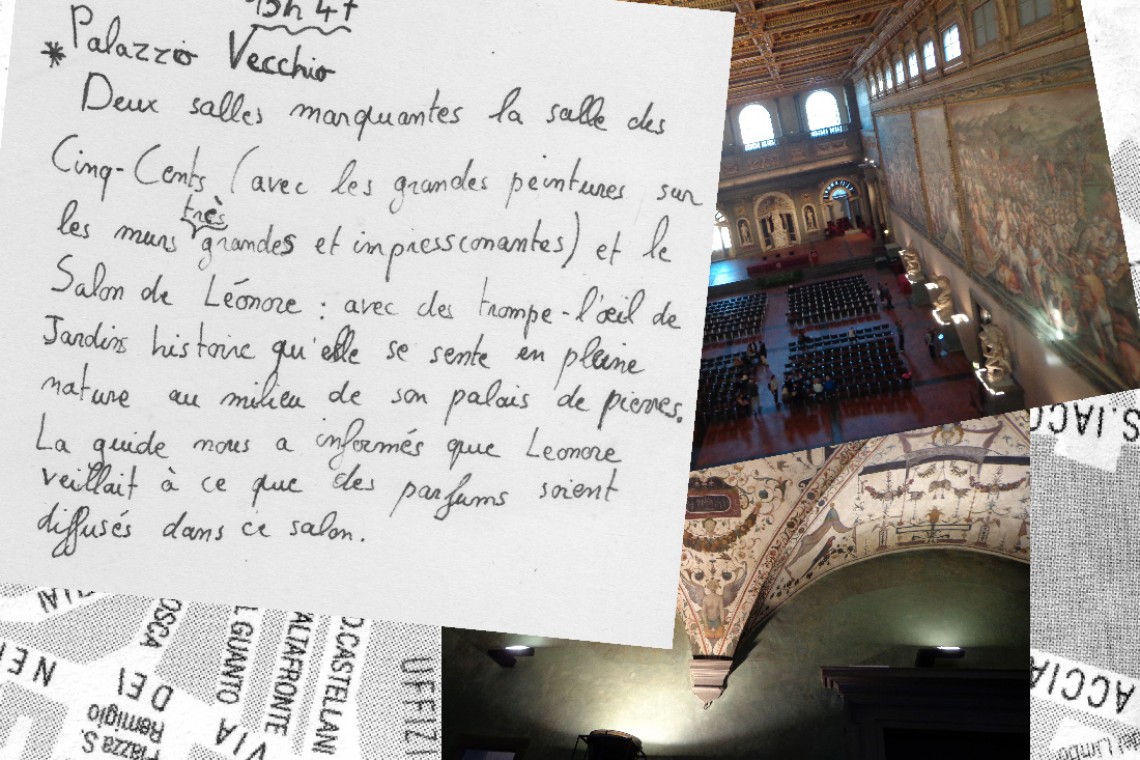 13h 47
* Palazzio Vecchio
Deux salles marquantes la salle des
Cinq-Cents (avec les grandes peintures sur
les murs très grandes et impressionantes) et le
Salon de Léonore : avec des trompe-l'œil de
Jardins histoire qu'elle se sente en pleine
nature au milieu de son palais de pierres.
La guide nous a informés que Leonore
veillait à ce que des parfums soient
diffusés dans ce salon.
S. IACO
ACCIA
del Limbo
UFFIZI
D. CASTELLANI
ALTAFRONTE
L. GIUANTO
VIA
OSCA
DEI
NERI
Piazza S.
Remigio